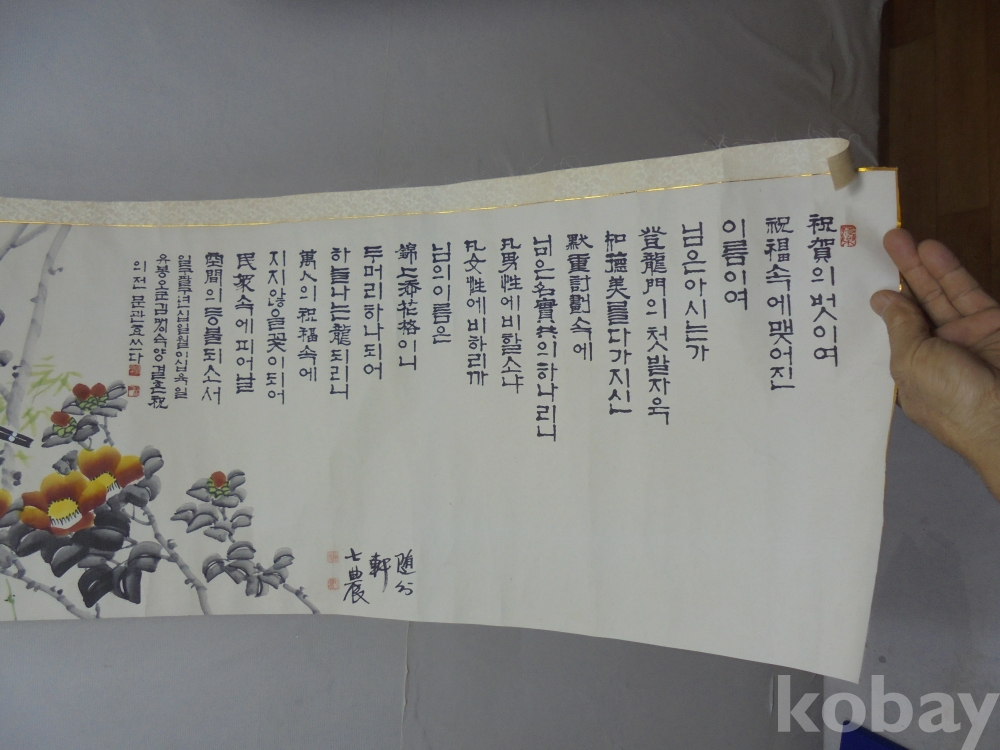 祝賀의 벗이여
祝福속에 맺어진
이름이여
님은 아시는가
登龍門의 첫발자욱
和德美를 다가지신
默重計劃속에
님은 名實共의 하나리니
凡男性에 비할소냐
凡女性에 비하리까
님의 이름은
錦上添花格이니
두머리 하나되어
하늘나는 龍되리니
萬人의 祝福속에
지지않을 꽃이되어
民衆속에 피어날
世間의 등불되소서
십일월이십육일
결혼祝
의전 문관효 쓰다
随分
軒
七農
kobay